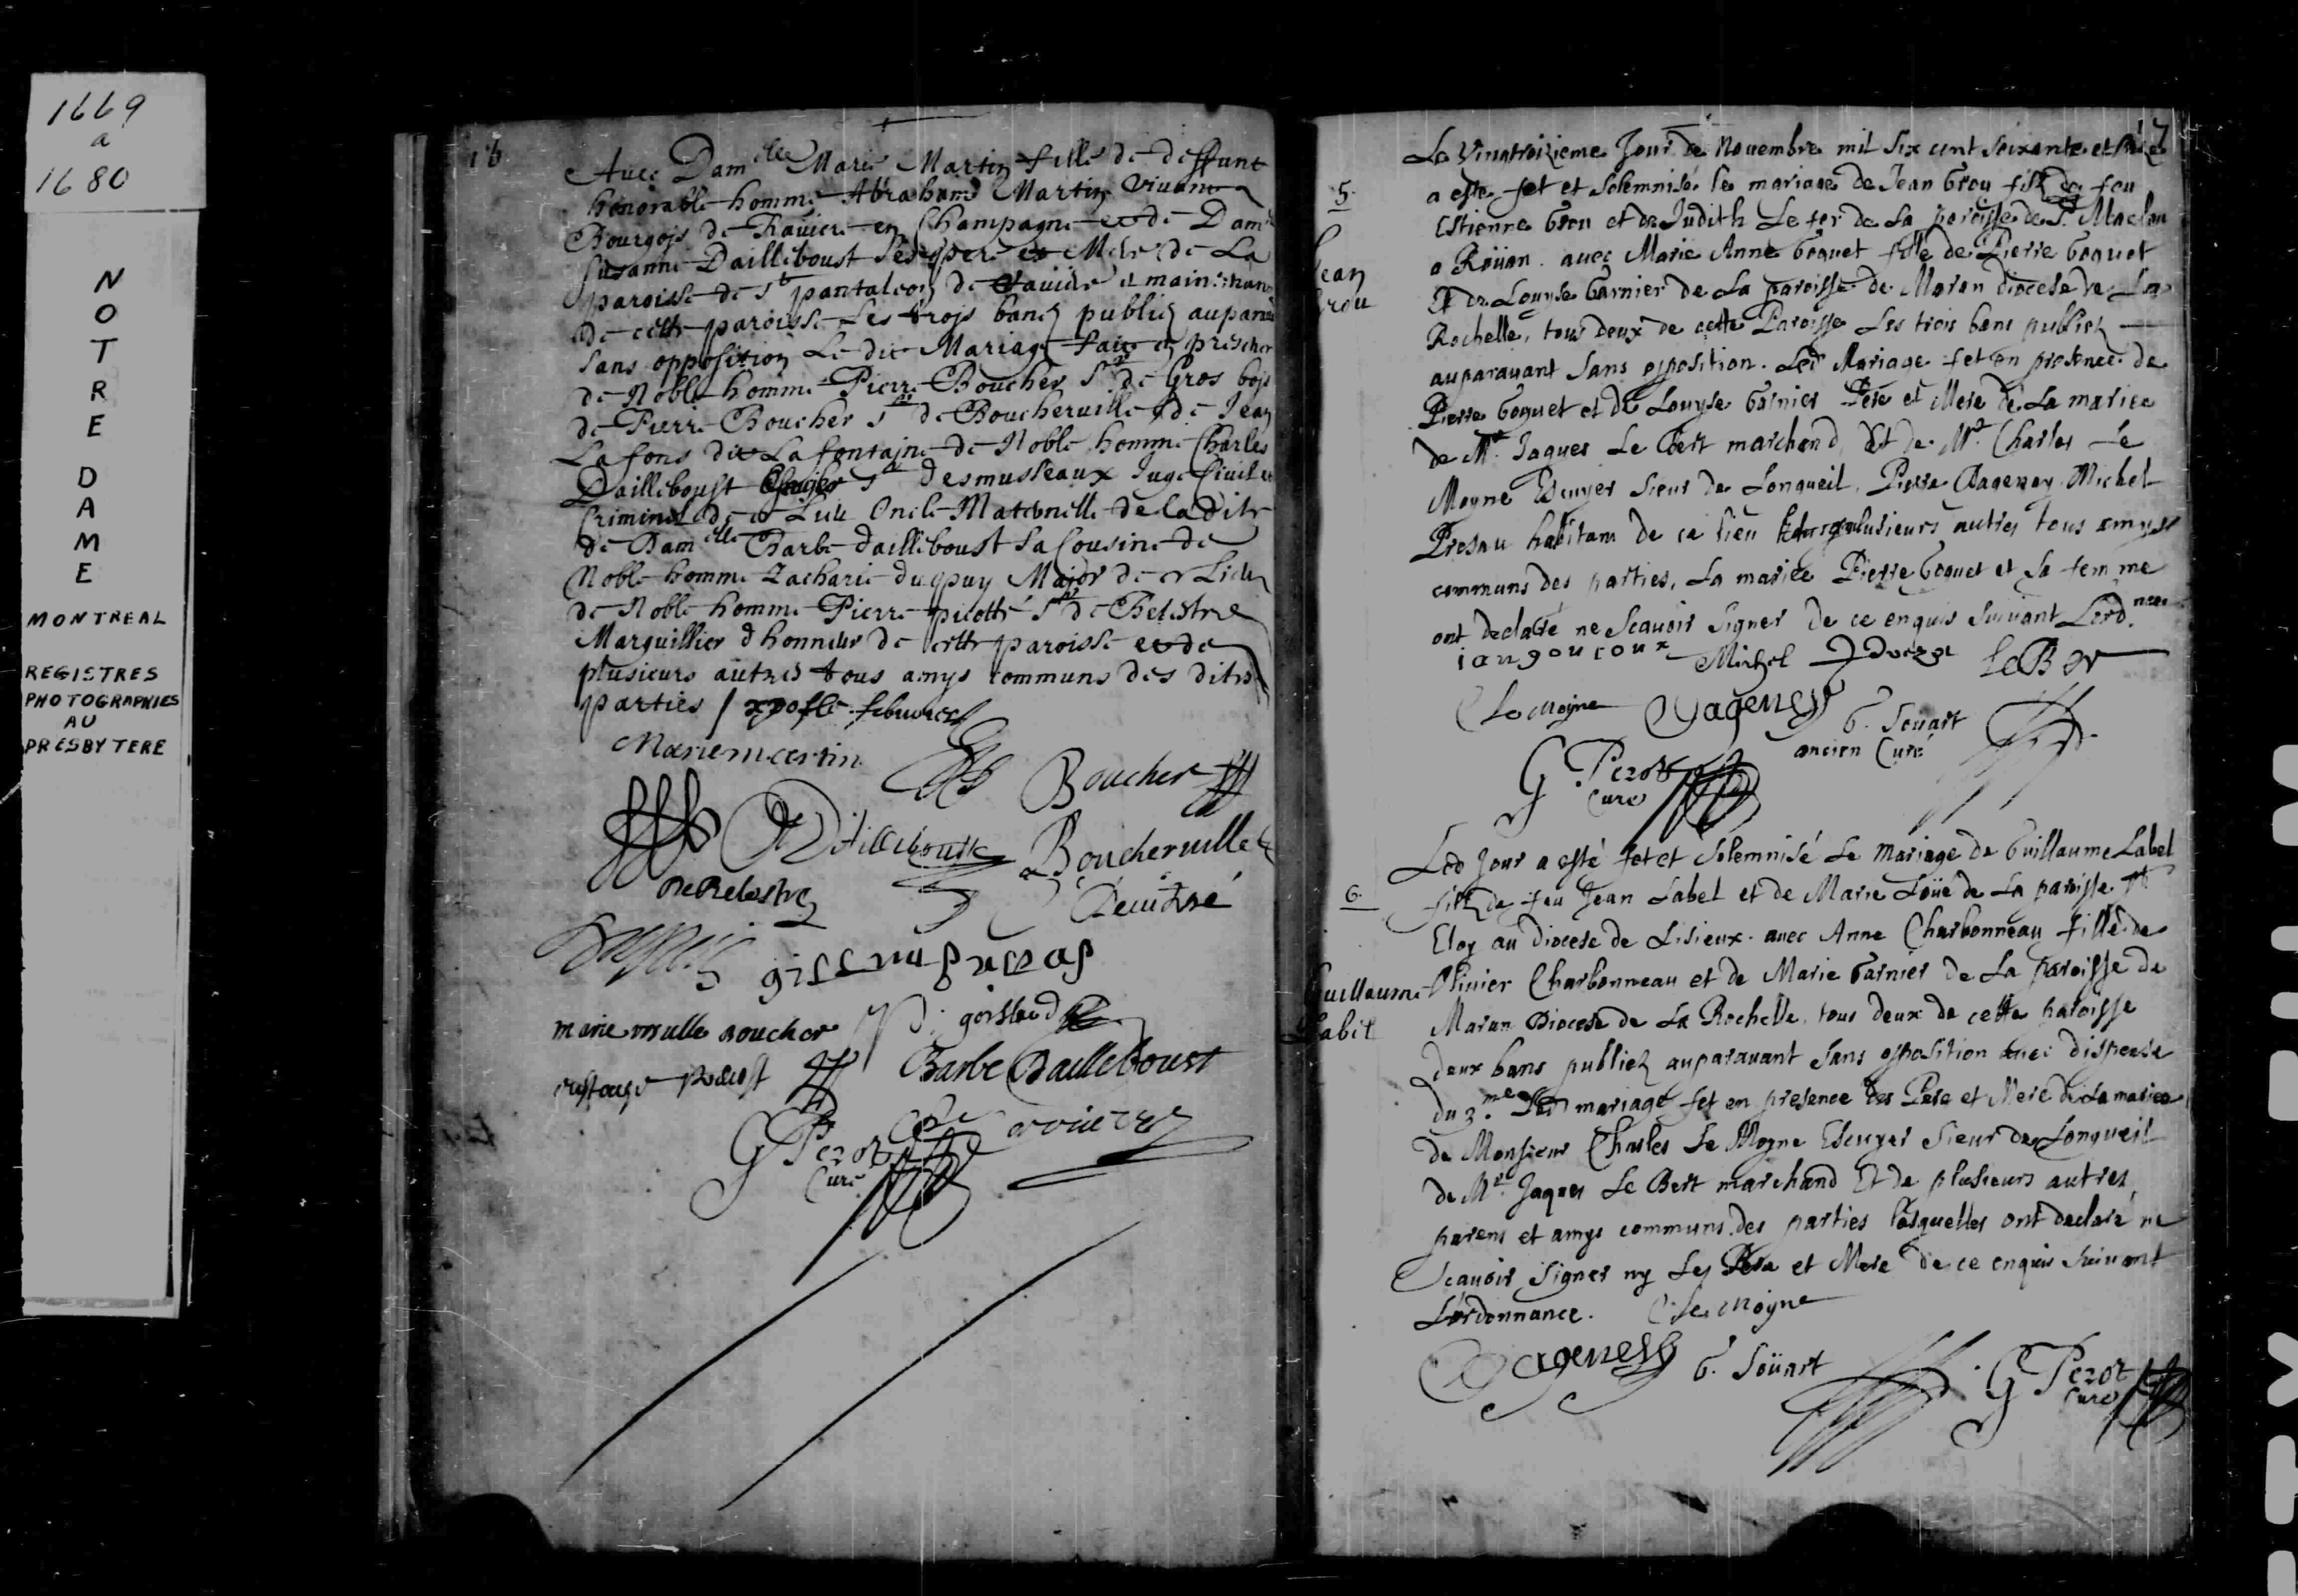 1669
a
1680
NOTRE
DAME
MONTREAL
REGISTRES
PHOTOGRAPHIES
AU
PRESBYTERE
Auec Dam.elle Marie Martin fille de deffunt
honorable homme Abraham Martin viuant
Bourgois de Rauiere en Champagne et de Dam.
Susanne Dailleboust Ses pere et Mere de La
paroisse de St pantaleon de et maintenant
de cette paroisse Les trois bans publiez
sans opposition Le dit Mariage fait en
de Noble homme Pierre Boucher Sr de Gros bois
de Pierre Boucher Sr de Boucheruille de Jean
Lafons dit La fontaine de Noble homme Charles
Dailleboust Sr desmusseaux Juge Ciuil et
Criminel de ce Lieu Oncle Maternelle de la dite
de Dam.elle Barbe dailleboust sa Cousine de
Noble homme Zacharie dupuy Major de ce Lieu
de Noble homme Pierre picotté Sr de Belestre
Marguillier dhonneur de cette paroisse et de
plusieurs autres tous amys communs des dites
parties /
Marie martin
Boucher
Dailleboust Boucheruille
De Belestre
marie boucher
Barbe Dailleboust
G Perot
Curé
17
Le Vingtroizieme Jour de Nouembre mil six cent soixante et
5.
a esté fet et solemnisé le mariage de Jean Grou fils de feu
Estienne Grou et de Judith Le fer de La paroisse de St Maclou
Jean
Grou
a Roüan. auec Marie Anne Goguet fille de Pierre Goguet
Et de Louyse Garnier de La paroisse de Maran diocese de La
Rochelle, tous deux de cette Paroisse Les trois bans publiez
auparauant sans oposition. Led Mariage fet en presence de
Pierre Goguet et de Louyse Garnier Pere et Mere de La mariee
de Mr. Jaques Le Bert marchand Et de Mr. Charles Le
Moyne Escuyer Sieur de Longueil, Pierre Dagenay Michel
habitans de ce lieu plusieurs autres tous amys
communs des parties, La mariee Pierre Goguet et sa femme
ont declaré ne Scauoir Signer de ce enquis suiuant Lord.nce
Michel leBer
C Le moyne Dageney
G. Souart
ancien Curé
G Perot
Curé
Led Jour a esté fet et solemnisé Le Mariage de Guillaume Label
6.
filz de feu Jean Label et de Marie Loüé de La paroisse St
Eloy au diocese de Lisieux. auec Anne Charbonneau fille de
Guillaume
Label
Oliuier Charbonneau et de Marie Garnier de La Paroisse de
Maran Diocese de La Rochelle, tous deux de cette paroisse
deux bans publiez auparauant sans oposition auec dispense
du 3.me Led mariage fet en presence des Pere et Mere de La mariee
de Monsieur Charles Le Moyne Escuyer Sieur de Longueil
de Mr. Jaques Le Bert marchand Et de plusieurs autres
parens et amys communs des parties lesquelles ont declaré ne
Scauoir Signer ny Les Pere et Mere de ce enquis suiuant
L'ordonnance. C. Le moyne
Dageney G. Soüart G Perot
Curé